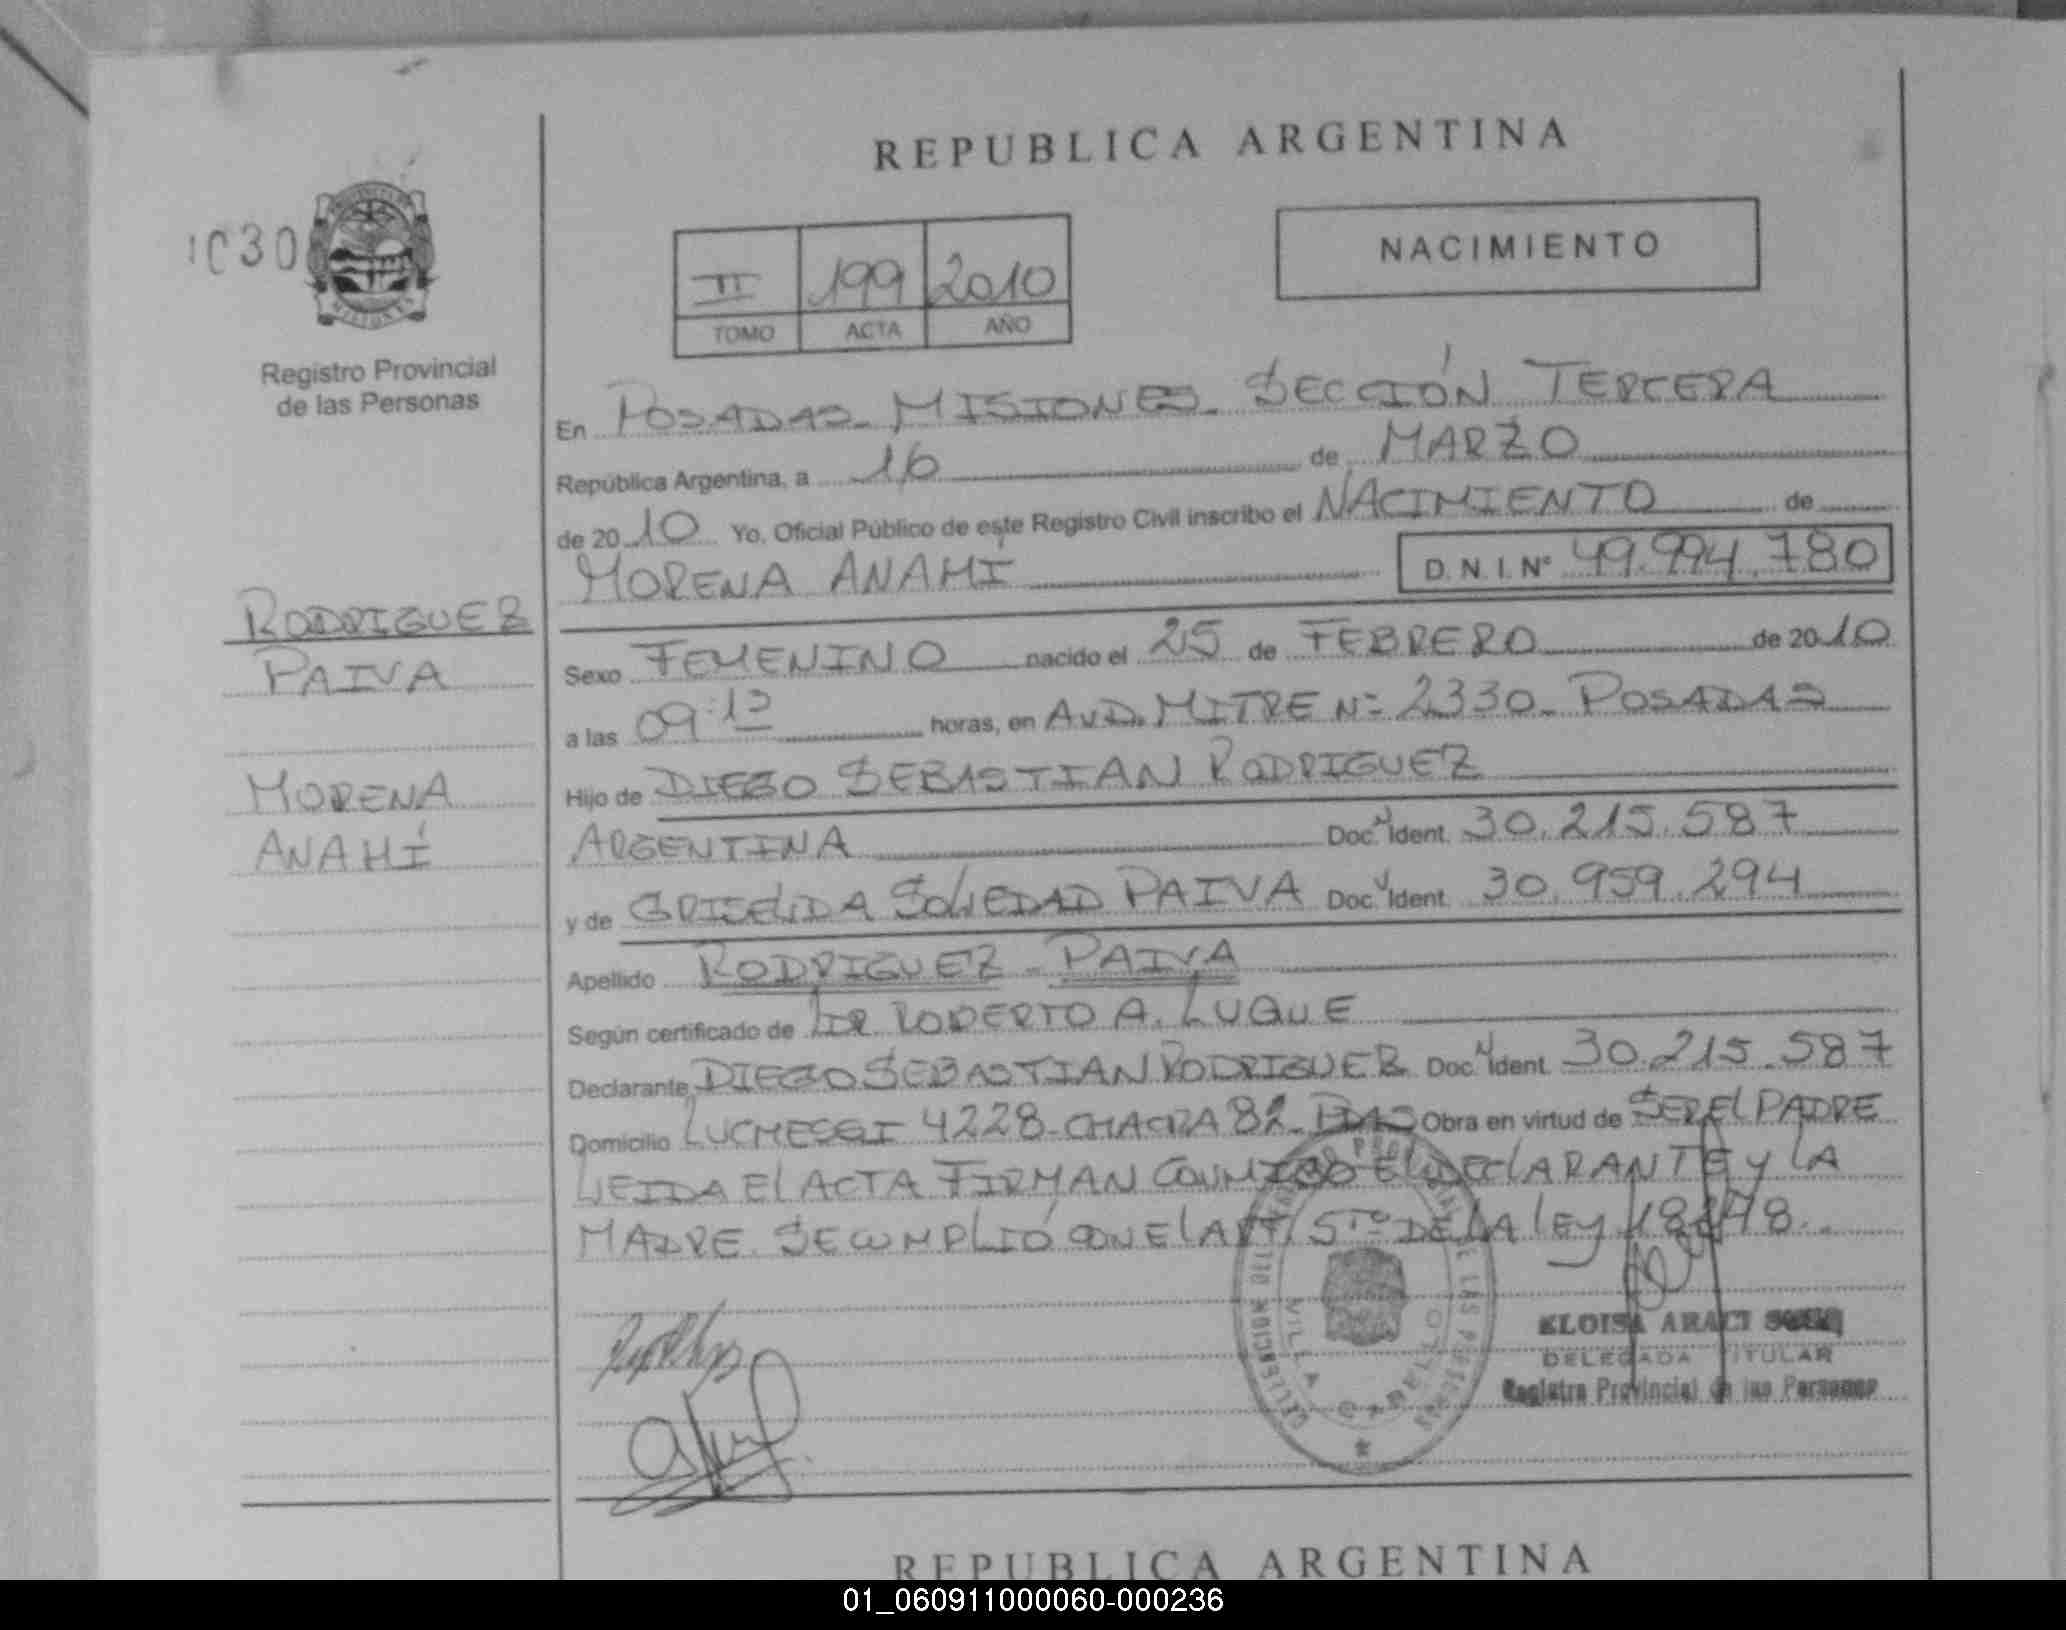 REPUBLICA ARGENTINA
1030
Registro Provincial
de las Personas
II 199 2010
TOMO ACTA AÑO
NACIMIENTO
En POSADAS MISIONES SECCIÓN TERCERA
República Argentina, a 16 de MARZO
de 2010 Yo, Oficial Público de este Registro Civil inscribo el NACIMIENTO de
MORENA ANAHÍ D.N.I. Nº 49.994.780
RODRIGUEZ
PAIVA
MORENA
ANAHÍ
Sexo FEMENINO nacido el 25 de FEBRERO de 2010
a las 09:13 horas, en AVD. MITRE Nº 2330 - POSADAS
Hijo de DIEGO SEBASTIAN RODRIGUEZ
ARGENTINA Doc. Ident. 30.215.587
y de GRISELDA SOLEDAD PAIVA Doc. Ident. 30.959.294
Apellido RODRIGUEZ - PAIVA
Según certificado de DR ROBERTO A. LUQUE
Declarante DIEGO SEBASTIAN RODRIGUEZ Doc. Ident. 30.215.587
Domicilio LUCHESSI 4228 - CHACRA 82 - PDAS Obra en virtud de SER EL PADRE
LEIDA El ACTA FIRMAN CONMIGO El DEClARANTE y LA
MADRE. SE CUMPLIÓ CON El ART 5to DE LA lEy 18248.
VILLA CABELLO
ELOISA ARACI
DELEGADA TITULAR
Registro Provincial de las Personas
REPUBLICA ARGENTINA
01_060911000060-000236